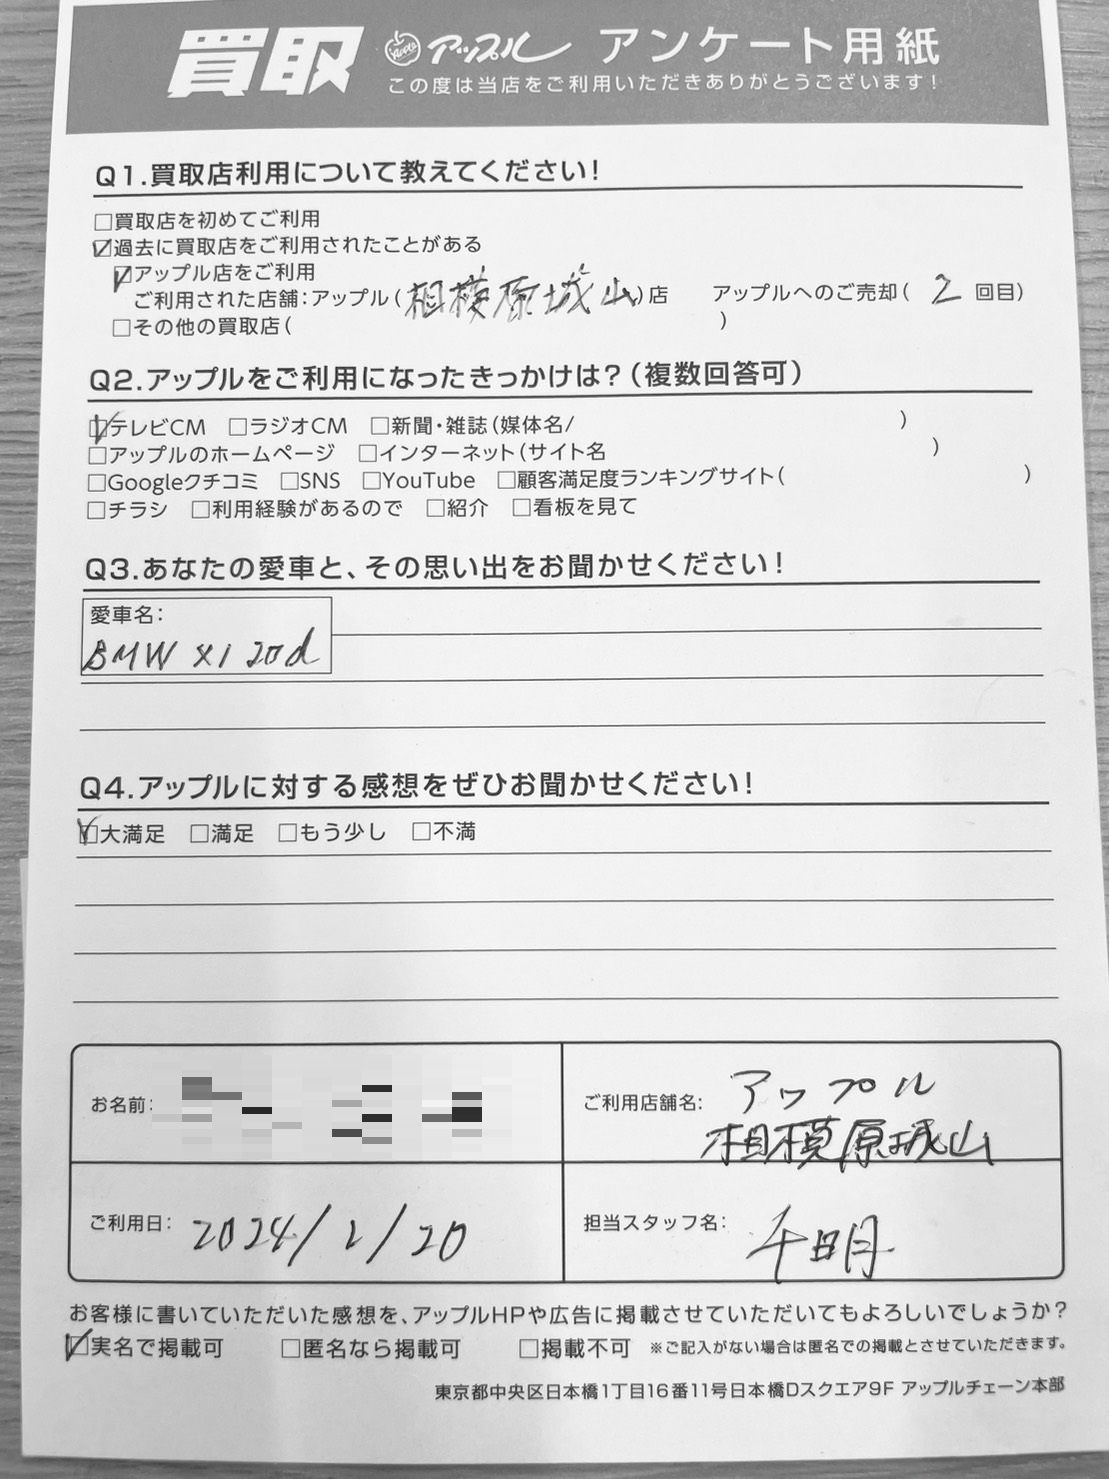 買取 Apple アップル アンケート用紙
この度は当店をご利用いただきありがとうございます!
Q1.買取店利用について教えてください!
□買取店を初めてご利用
☑過去に買取店をご利用されたことがある
☑アップル店をご利用
ご利用された店舗:アップル(相模原城山)店 アップルへのご売却(2回目)
□その他の買取店( )
Q2.アップルをご利用になったきっかけは?(複数回答可)
☑テレビCM □ラジオCM □新聞・雑誌(媒体名/ )
□アップルのホームページ □インターネット(サイト名 )
□Googleクチコミ □SNS □YouTube □顧客満足度ランキングサイト( )
□チラシ □利用経験があるので □紹介 □看板を見て
Q3.あなたの愛車と、その思い出をお聞かせください!
愛車名:
BMW X1 20d
Q4.アップルに対する感想をぜひお聞かせください!
☑大満足 □満足 □もう少し □不満
お名前:
ご利用店舗名: アップル
相模原城山
ご利用日: 2024/2/20
担当スタッフ名: 千明
お客様に書いていただいた感想を、アップルHPや広告に掲載させていただいてもよろしいでしょうか?
☑実名で掲載可 □匿名なら掲載可 □掲載不可 ※ご記入がない場合は匿名での掲載とさせていただきます。
東京都中央区日本橋1丁目16番11号日本橋Dスクエア9F アップルチェーン本部